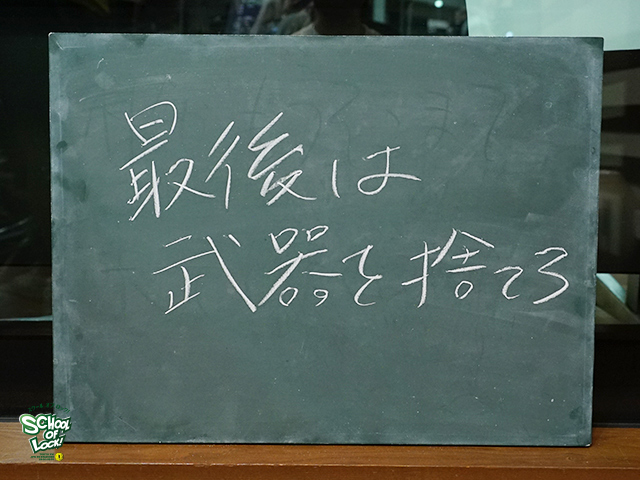 最後は
武器を捨てろ
SCHOOL
OF
LOCK!